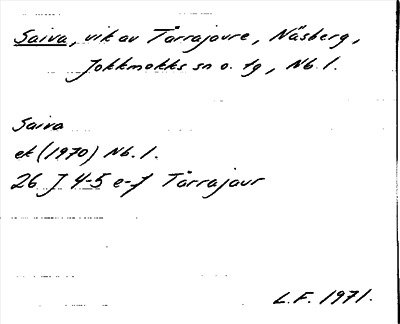 Saiva, vik av Tårrajaure, Näsberg,
Jokkmokks sn o. tg, Nb.l.
Saiva
ek (1970) Nb.l.
26 J 4-5 e-f Tårrajaur
L.F. 1971.